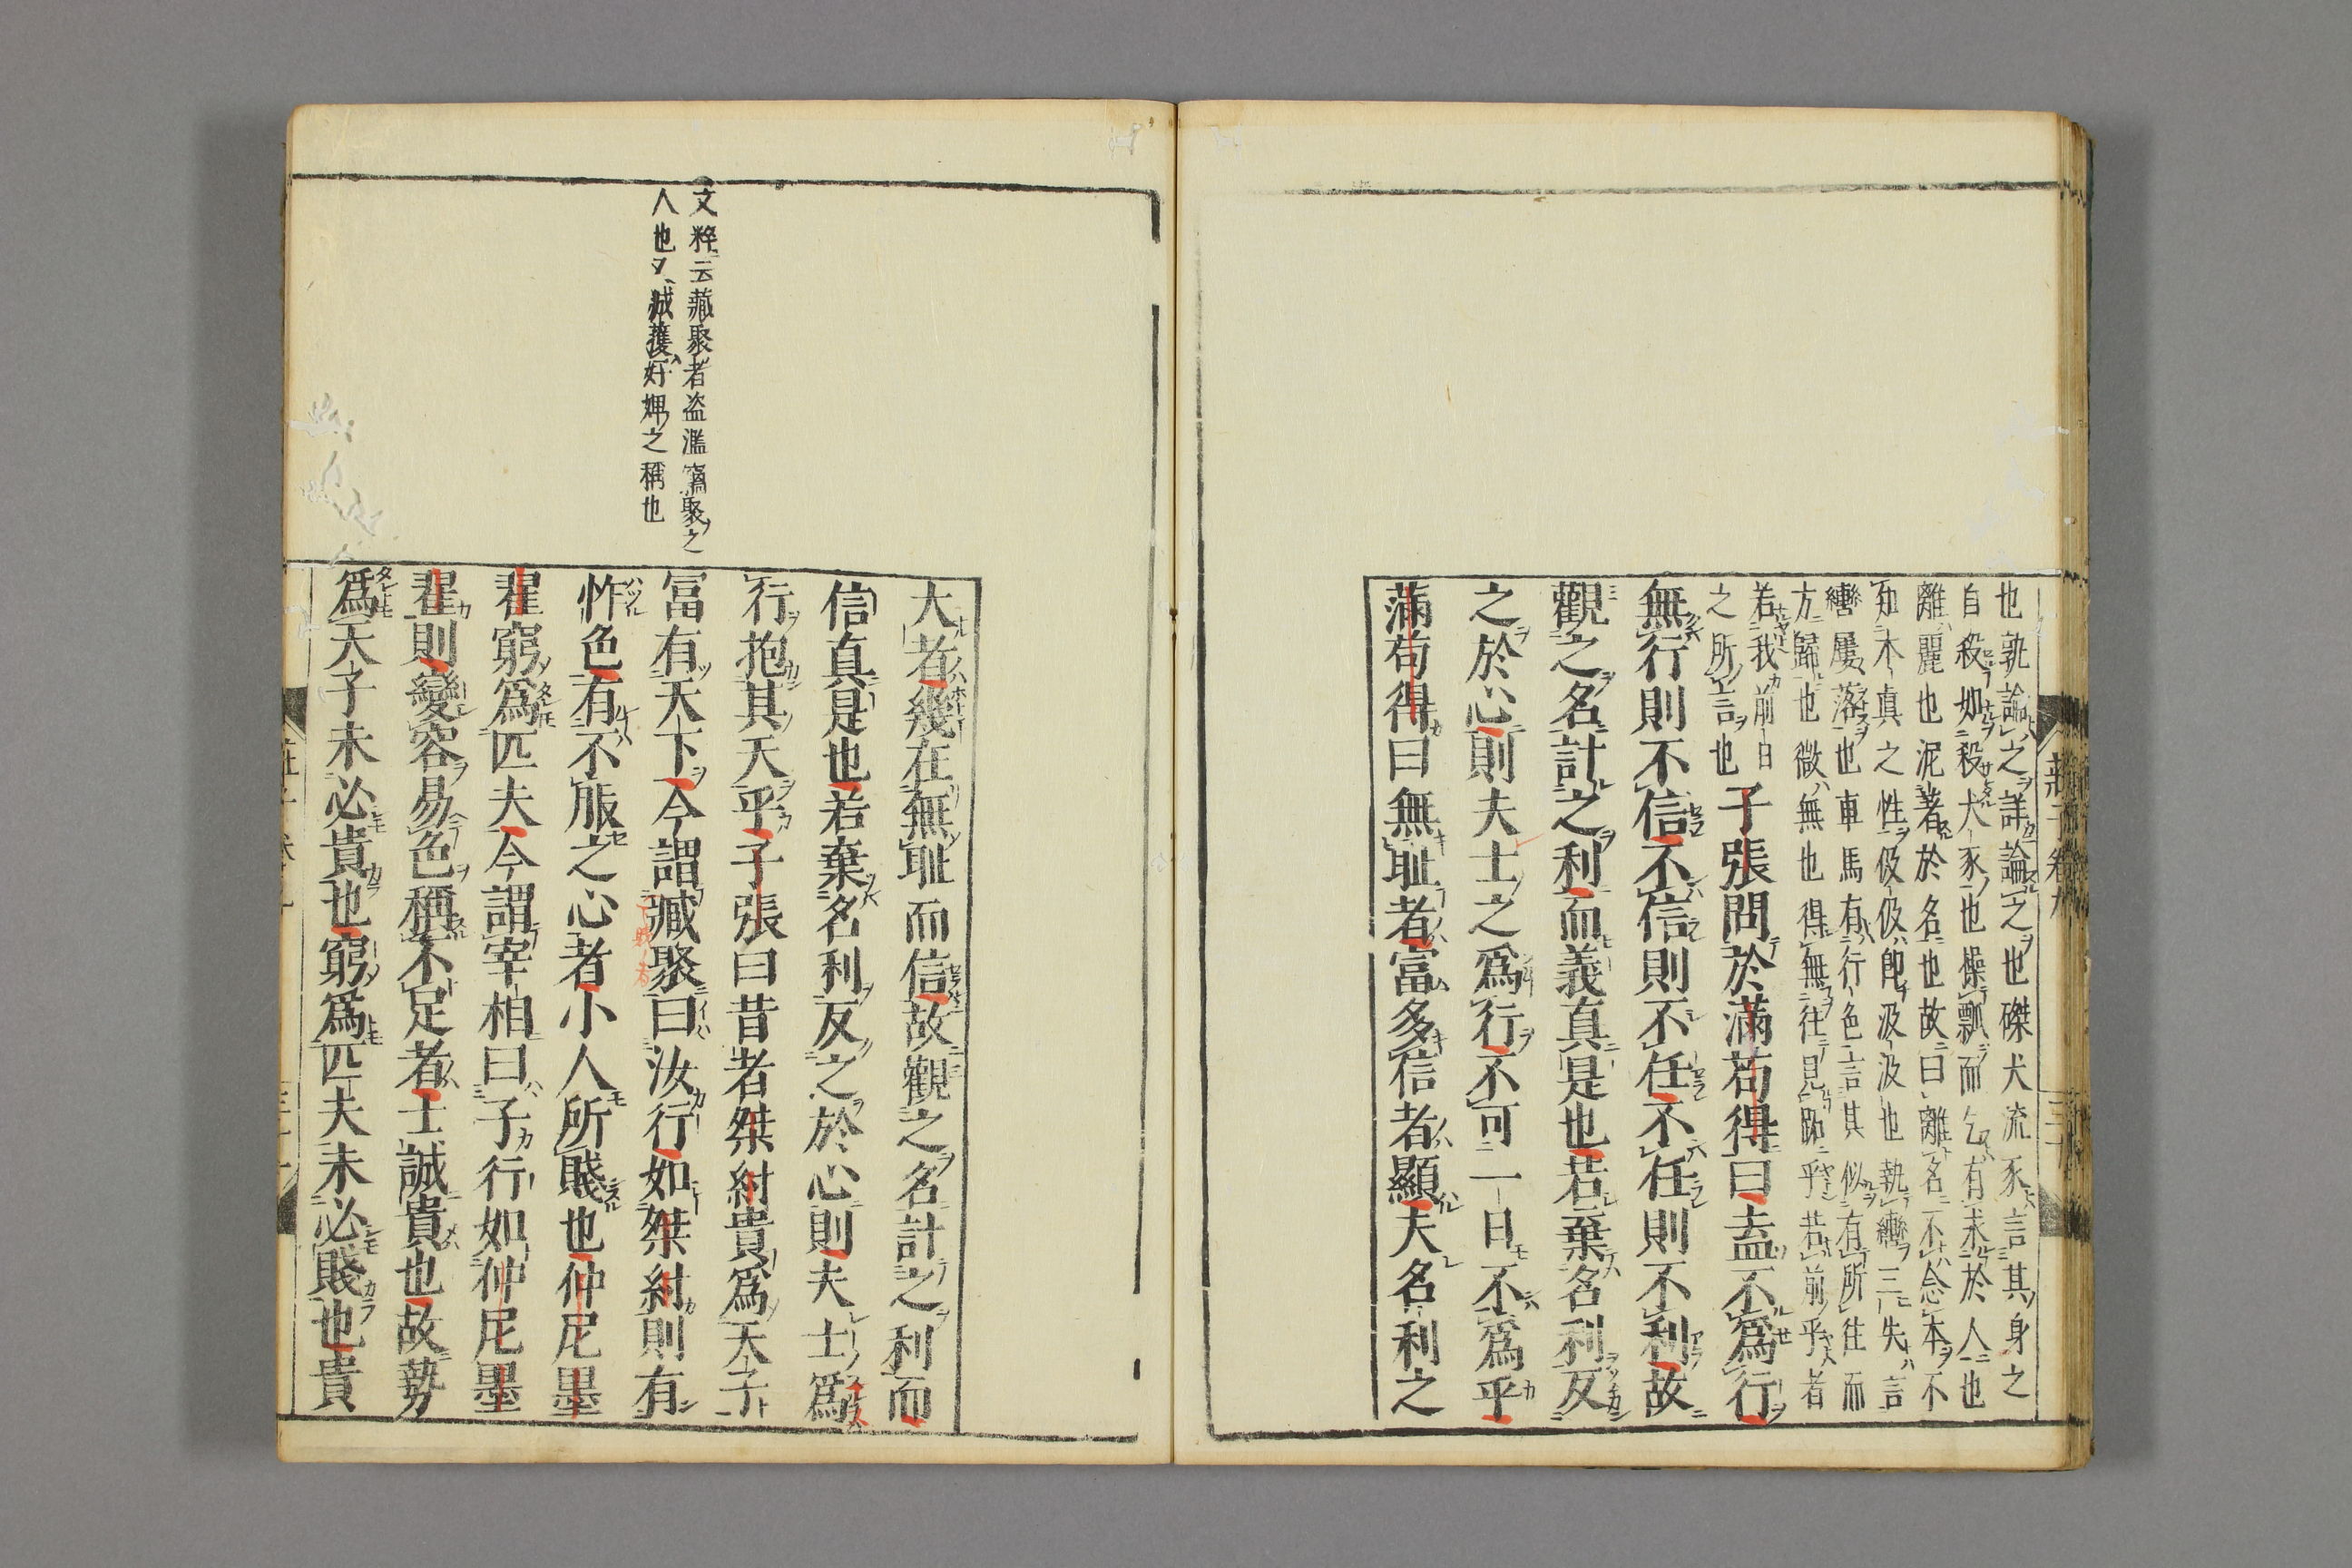 也孰論之詳論之也磔犬流豕言其身之
自殺如殺犬豕也操瓢而乞有求於人也
離麗也泥著於名也故曰離名不念本不
知木真之性伋伋即汲汲也執轡三失言
轡屢落也車馬有行色言其似有所往而
方歸也微無也得無往見跖乎若前乎者
若我前日
之所言也
子張問於滿苟得曰盍不爲行
無行則不信不信則不任不任則不利故
觀之名計之利而義真是也若棄名利反
之於心則夫士之爲行不可一日不爲乎
滿苟得曰無耻者富多信者顯夫名利之
大者幾在無耻而信故觀之名計之利而
信真是也若棄名利反之於心則夫士爲
行抱其天乎子張曰昔者桀紂貴爲天子
冨有天下今謂臧聚曰汝行如桀紂則有
怍色有不服之心者小人所賤也仲尼墨
翟窮爲匹夫今謂宰相曰子行如仲尼墨
翟則變容易色稱不足者士誠貴也故勢
爲天子未必貴也窮爲匹夫未必賤也貴
文粹云藏聚者盗濫竊聚之
人也又臧獲奴婢之稱也